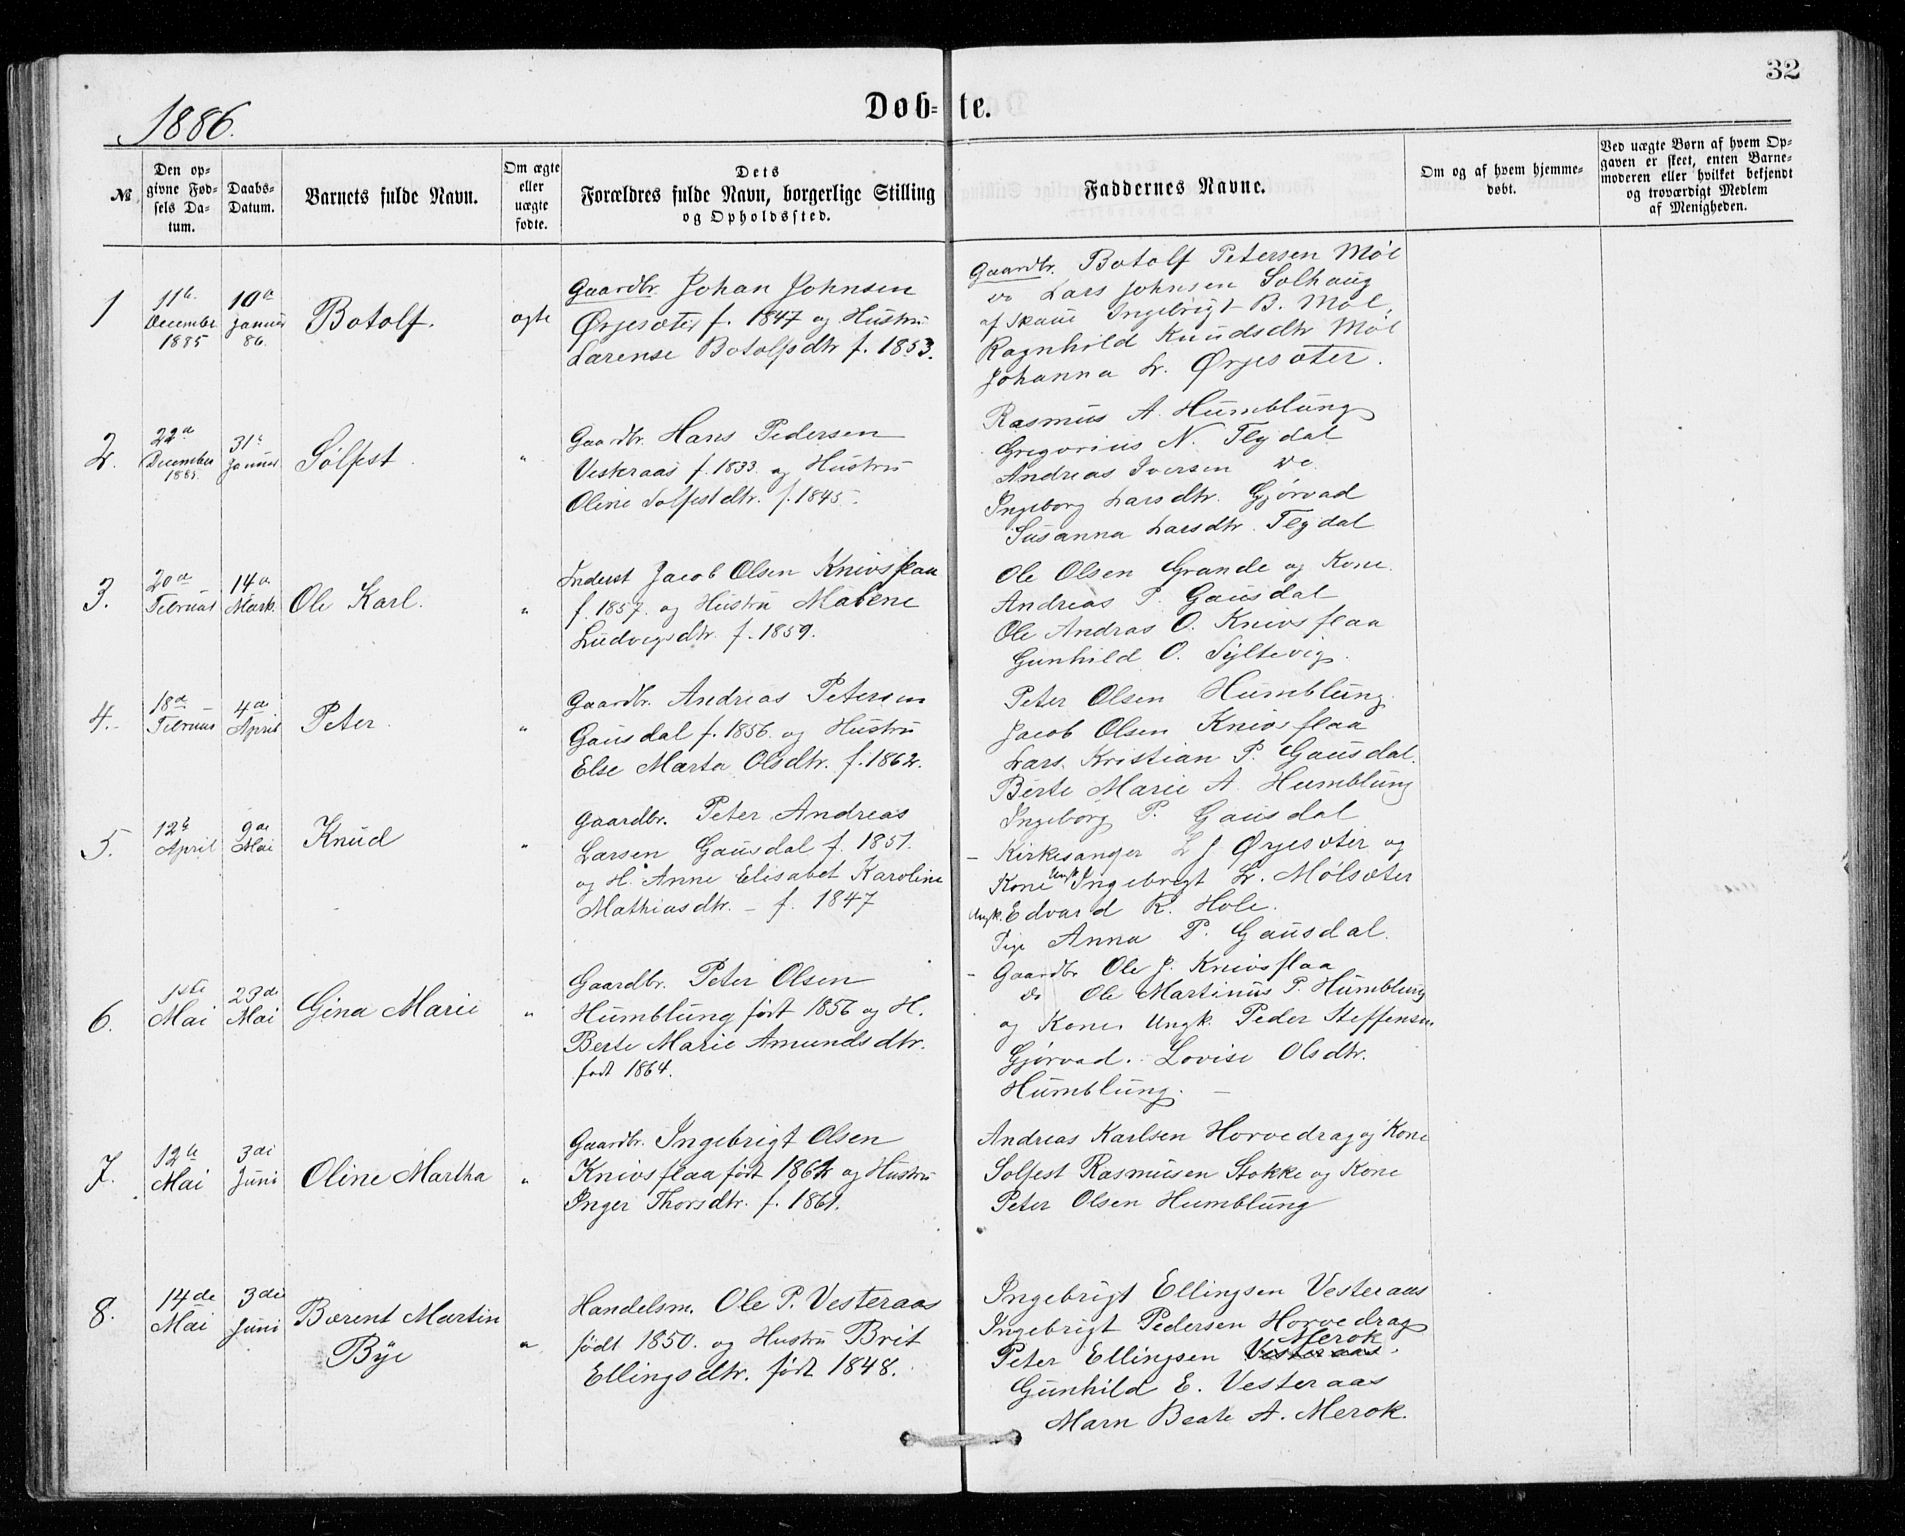 32
1886.
Døb-te.
№
Den op-
givne Fød-
sels Da-
tum.
Daabs-
Datum.
Barnets fulde Navn.
Om ægte
eller
uægte
fødte.
Dets
Forældres fulde Navn, borgerlige Stilling
og Opholdssted.
Faddernes Navne.
Om og af hvem hjemme-
døbt.
Ved uægte Børn af hvem Op-
gaven er skeet, enten Barne-
moderen eller hvilket bekjendt
og troværdigt Medlem
af Menigheden.
1
11te
December
1885
10de
Januar
86.
Botolf.
ægte
Gaardbr. Johan Johnsen
Ørjesæter f. 1847 og Hustru
Larense Botolfsdtr f. 1853.
Gaardbr. Botolf Petersen Møl
do Lars Johnsen Solhaug
af Skaue Ingebrigt B. Møl,
Ragnhild Knudsdtr Møl
Johanna L. Ørjesæter.
2.
22de
December
1885.
31te
Januar
Sølfest
"
Gaardbr. Hans Pedersen
Vesteraas f. 1833. og Hustru
Oline Solfestdtr. f. 1845.
Rasmus A. Humblung
Gregorius N. Flydal
Andreas Iversen do
Ingeborg Larsdtr. Gjørvad
Susanna Larsdtr. Flydal
3.
20de
Februar
14de
Marts.
Ole Karl.
"
Inderst Jacob Olsen Knivsflaa
f. 1857. og Hustru Malene
Ludvigsdtr. f. 1859.
Ole Olsen Grande og Kone.
Andreas P. Gausdal
Ole Andras O. Knivsflaa
Gunhild O. Syltevig.
4.
18de
Februar
4de
April
Peter.
"
Gaardbr. Andreas Petersen
Gausdal f. 1856. og Hustru
Else Marta Olsdtr. f. 1862.
Peter Olsen Humblung.
Jacob Olsen Knivsflaa
Lars Kristian P. Gausdal.
Berte Marie A. Humblung
Ingeborg P. Gausdal
5.
12te
April
9de
Mai
Knud
"
Gaardbr. Peter Andreas
Larsen Gausdal f. 1851.
og H. Anne Elisabet Karoline
Mathiasdtr. – f. 1847
– Kirkesanger L J Ørjesæter og
Kone Ungk. Ingebrigt Lr. Mølsæter
Ungk. Edvard K. Hole.
Pige Anna P. Gausdal.
6.
1ste
Mai
23de
Mai
Gina Marie
"
Gaardbr. Peter Olsen
Humblung født 1856 og H.
Berte Marie Amundsdtr.
født 1864.
– Gaardbr Ole J. Knivsflaa
do Ole Martinus P. Humblung
og Kone. Ungk. Peder Steffensen
Gjørvad. Lovise Olsdtr.
Humblung. –
7.
12te
Mai
3die
Juni
Oline Martha
"
Gaardbr. Ingebrigt Olsen
Knivsflaa født 1862 og Hustru
Inger Thorsdtr. f. 1861.
Andreas Karlsen Horvedrag og Kone
Solfest Rasmusen Stokke og Kone
Peter Olsen Humblung
8.
14de
Mai
3die
Juni
Bærent Martin
Bÿe
"
Handelsm. Ole P. Vesteraas
født 1850. og Hustru Brit
Ellingsdtr. født 1848.
Ingebrigt Ellingsen Vesteraas
Ingebrigt Pedersen Horvedrag
Merok
Peter Ellingsen Vesteraas.
Gunhild E. Vesteraas
Marn Beate A. Merok.